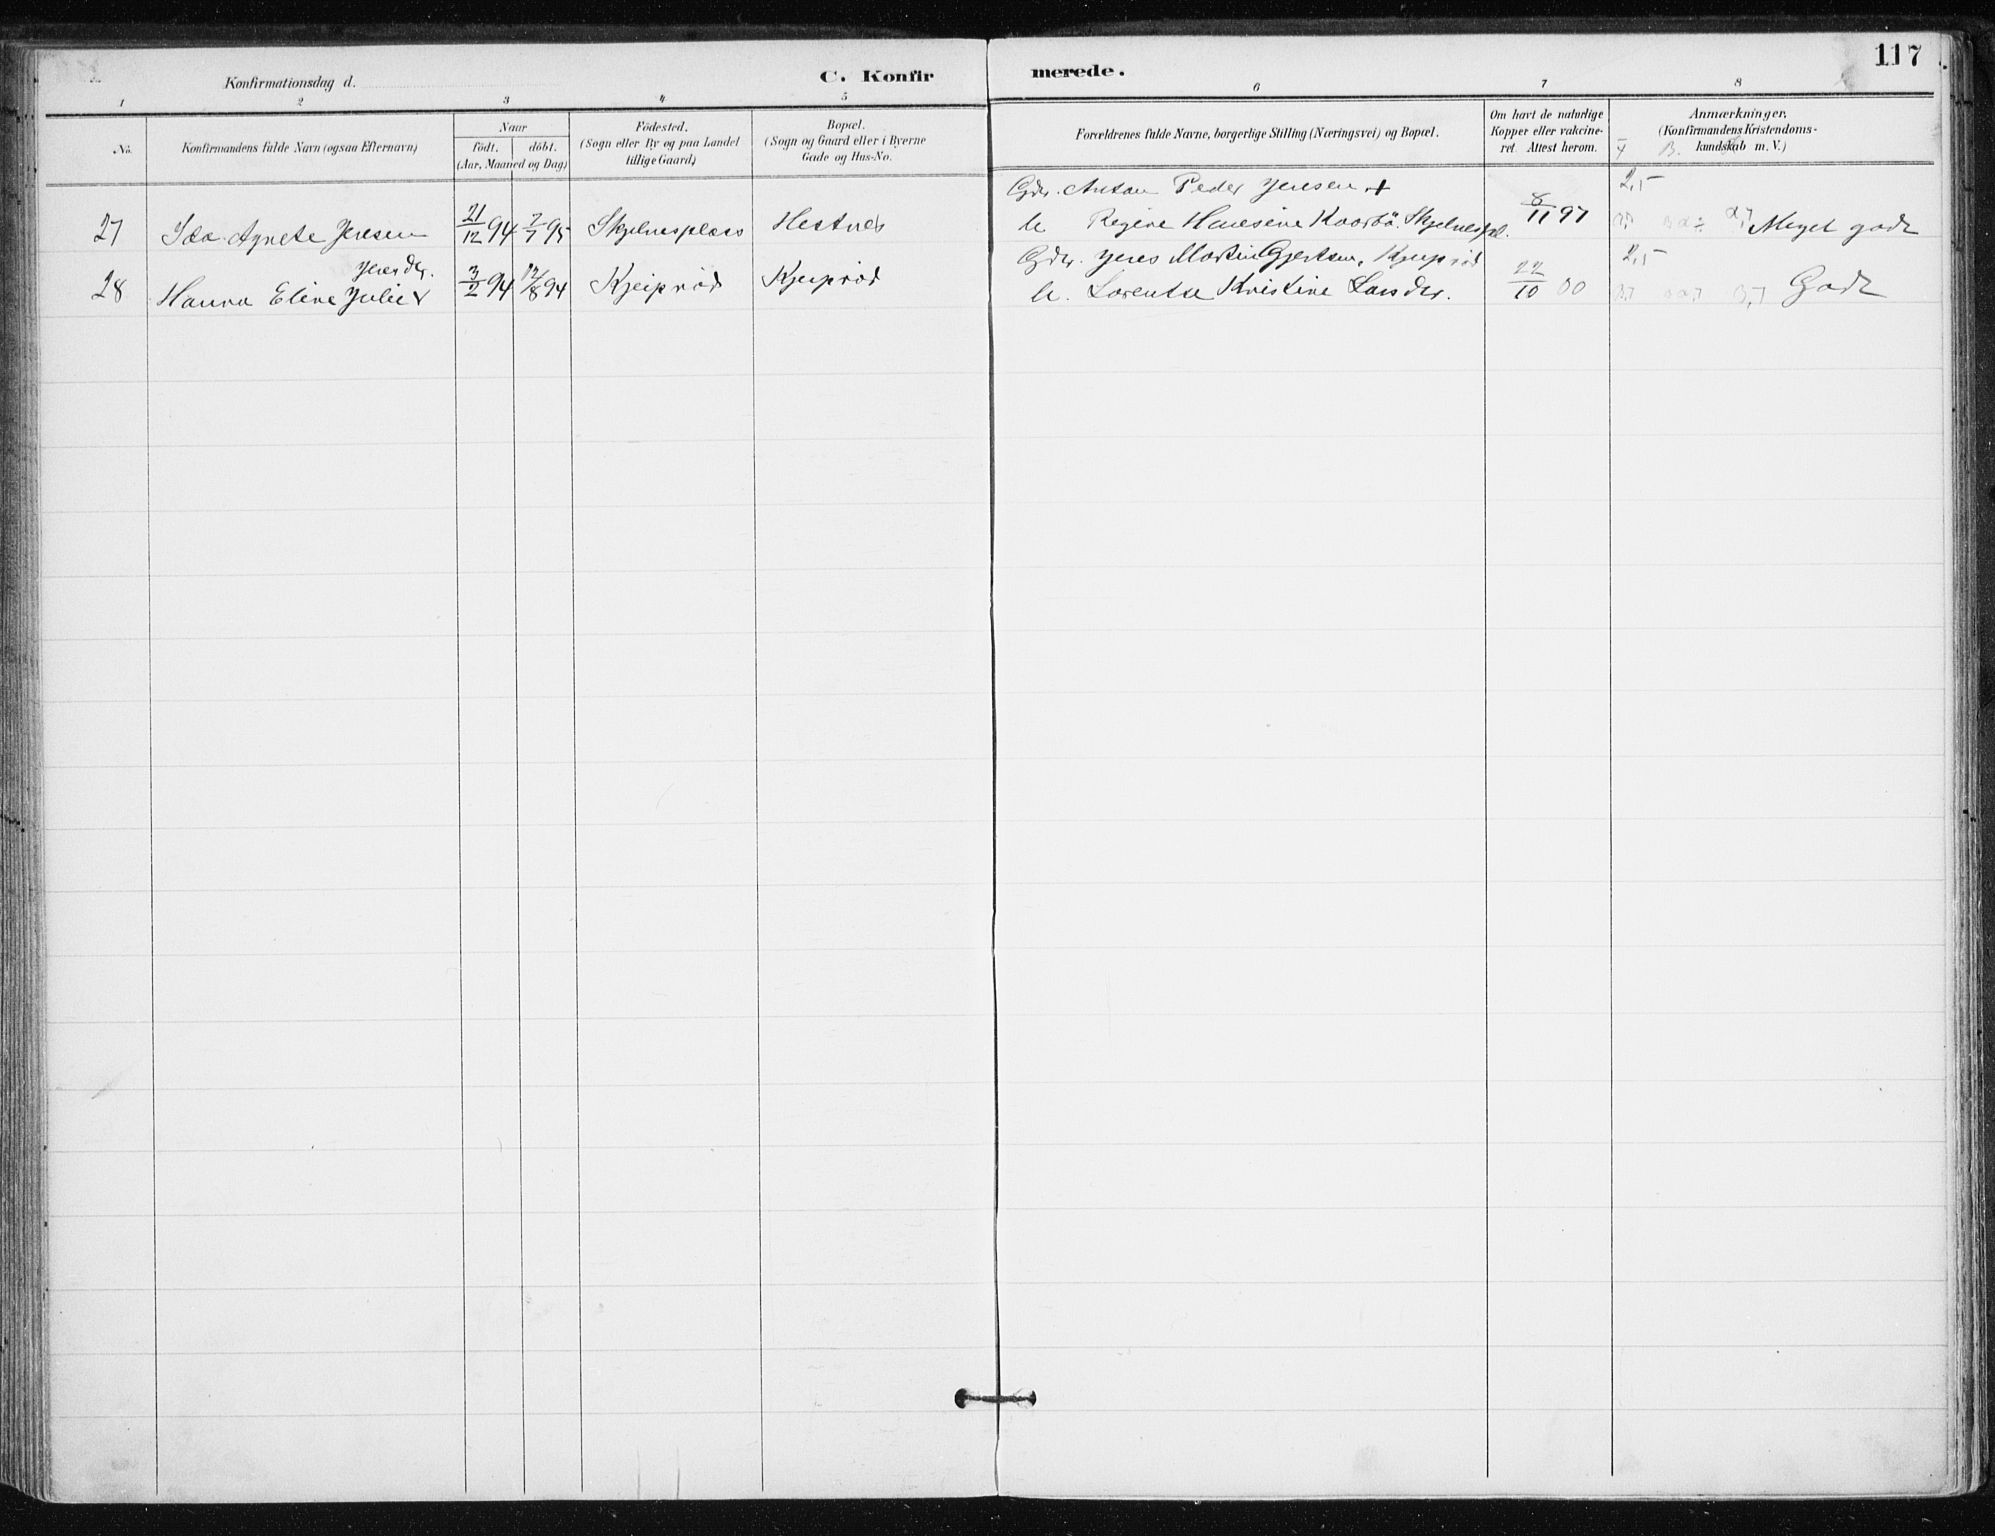 117
Konfirmationsdag d.
C. Konfirmerede.
1 2 3 4 5 6 7 8
No.
Konfirmandens fulde Navn (ogsaa Efternavn)
Naar
födt. döbt.
(Aar, Maaned og Dag)
Födested.
(Sogn eller By og paa Landet
tillige Gaard)
Bopæl.
(Sogn og Gaard eller i Byerne
Gade og Hus-No.
Forældrenes fulde Navne, borgerlige Stilling (Næringsvei) og Bopæl.
Om havt de naturlige
Kopper eller vakcine-
ret. Attest herom.
Anmærkninger.
(Konfirmandens Kristendoms-
kundskab m.V.)
Gdr. Anton Peder Jensen +
2,5
27 Ida Agnete Jensen 21/12 94 7/7 95 Skjelnesplads Hestnes
h. Regine Hansine Kaarbö. Skjelnespl. 8/11 97 Meget godt
Jensdr.
Gdr. Jens Martin Gjertsen, Kjeiprød
2,5
28 Hanna Eline Julie 3/2 94 12/8 94 Kjeiprød Kjeiprød
h. Lorentse Kristine Larsdr. 22/10 00 Godt